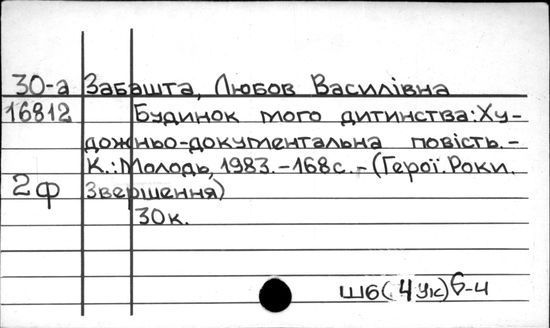 30-а Забашта, Любов Василівна
16812 Будинок мого дитинства: Ху-
дожньо-документальна повість.-
К.: Молодь, 1983.-168с.-(Герої. Роки.
2ф Звершення)
30к.
Ш6(4Ук)6-4